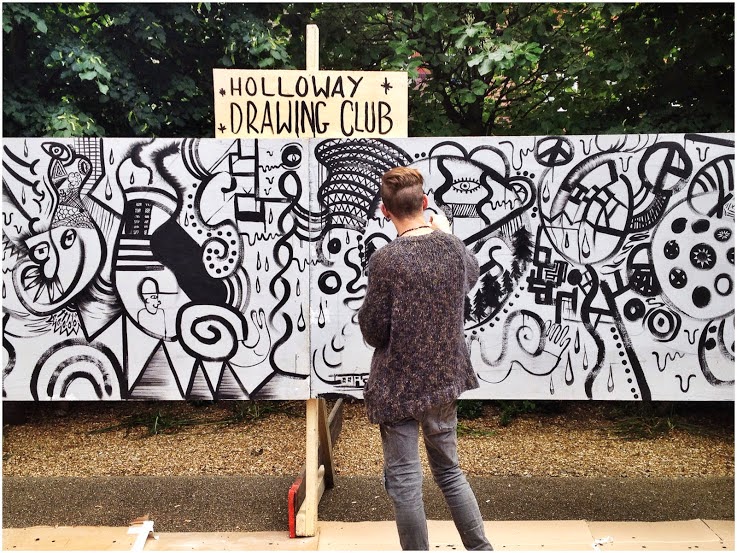 HOLLOWAY
DRAWING CLUB